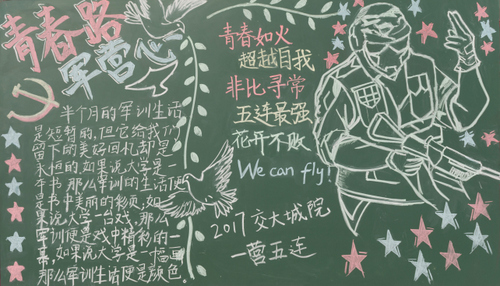 青春路
军营心
半个月的军训生活
是短暂的,但它给我们
留下的美好回忆却是
永恒的,如果说大学是一
本书,那么军训的生活便
是书中美丽的彩页,如
果说大学一台戏,那么
军训便是戏中精彩的一
幕,如果说大学是一幅画
那么军训生活便是颜色。
青春如火
超越自我
非比寻常
五连最强
花开不败
We can fly!
2017交大城院
一营五连